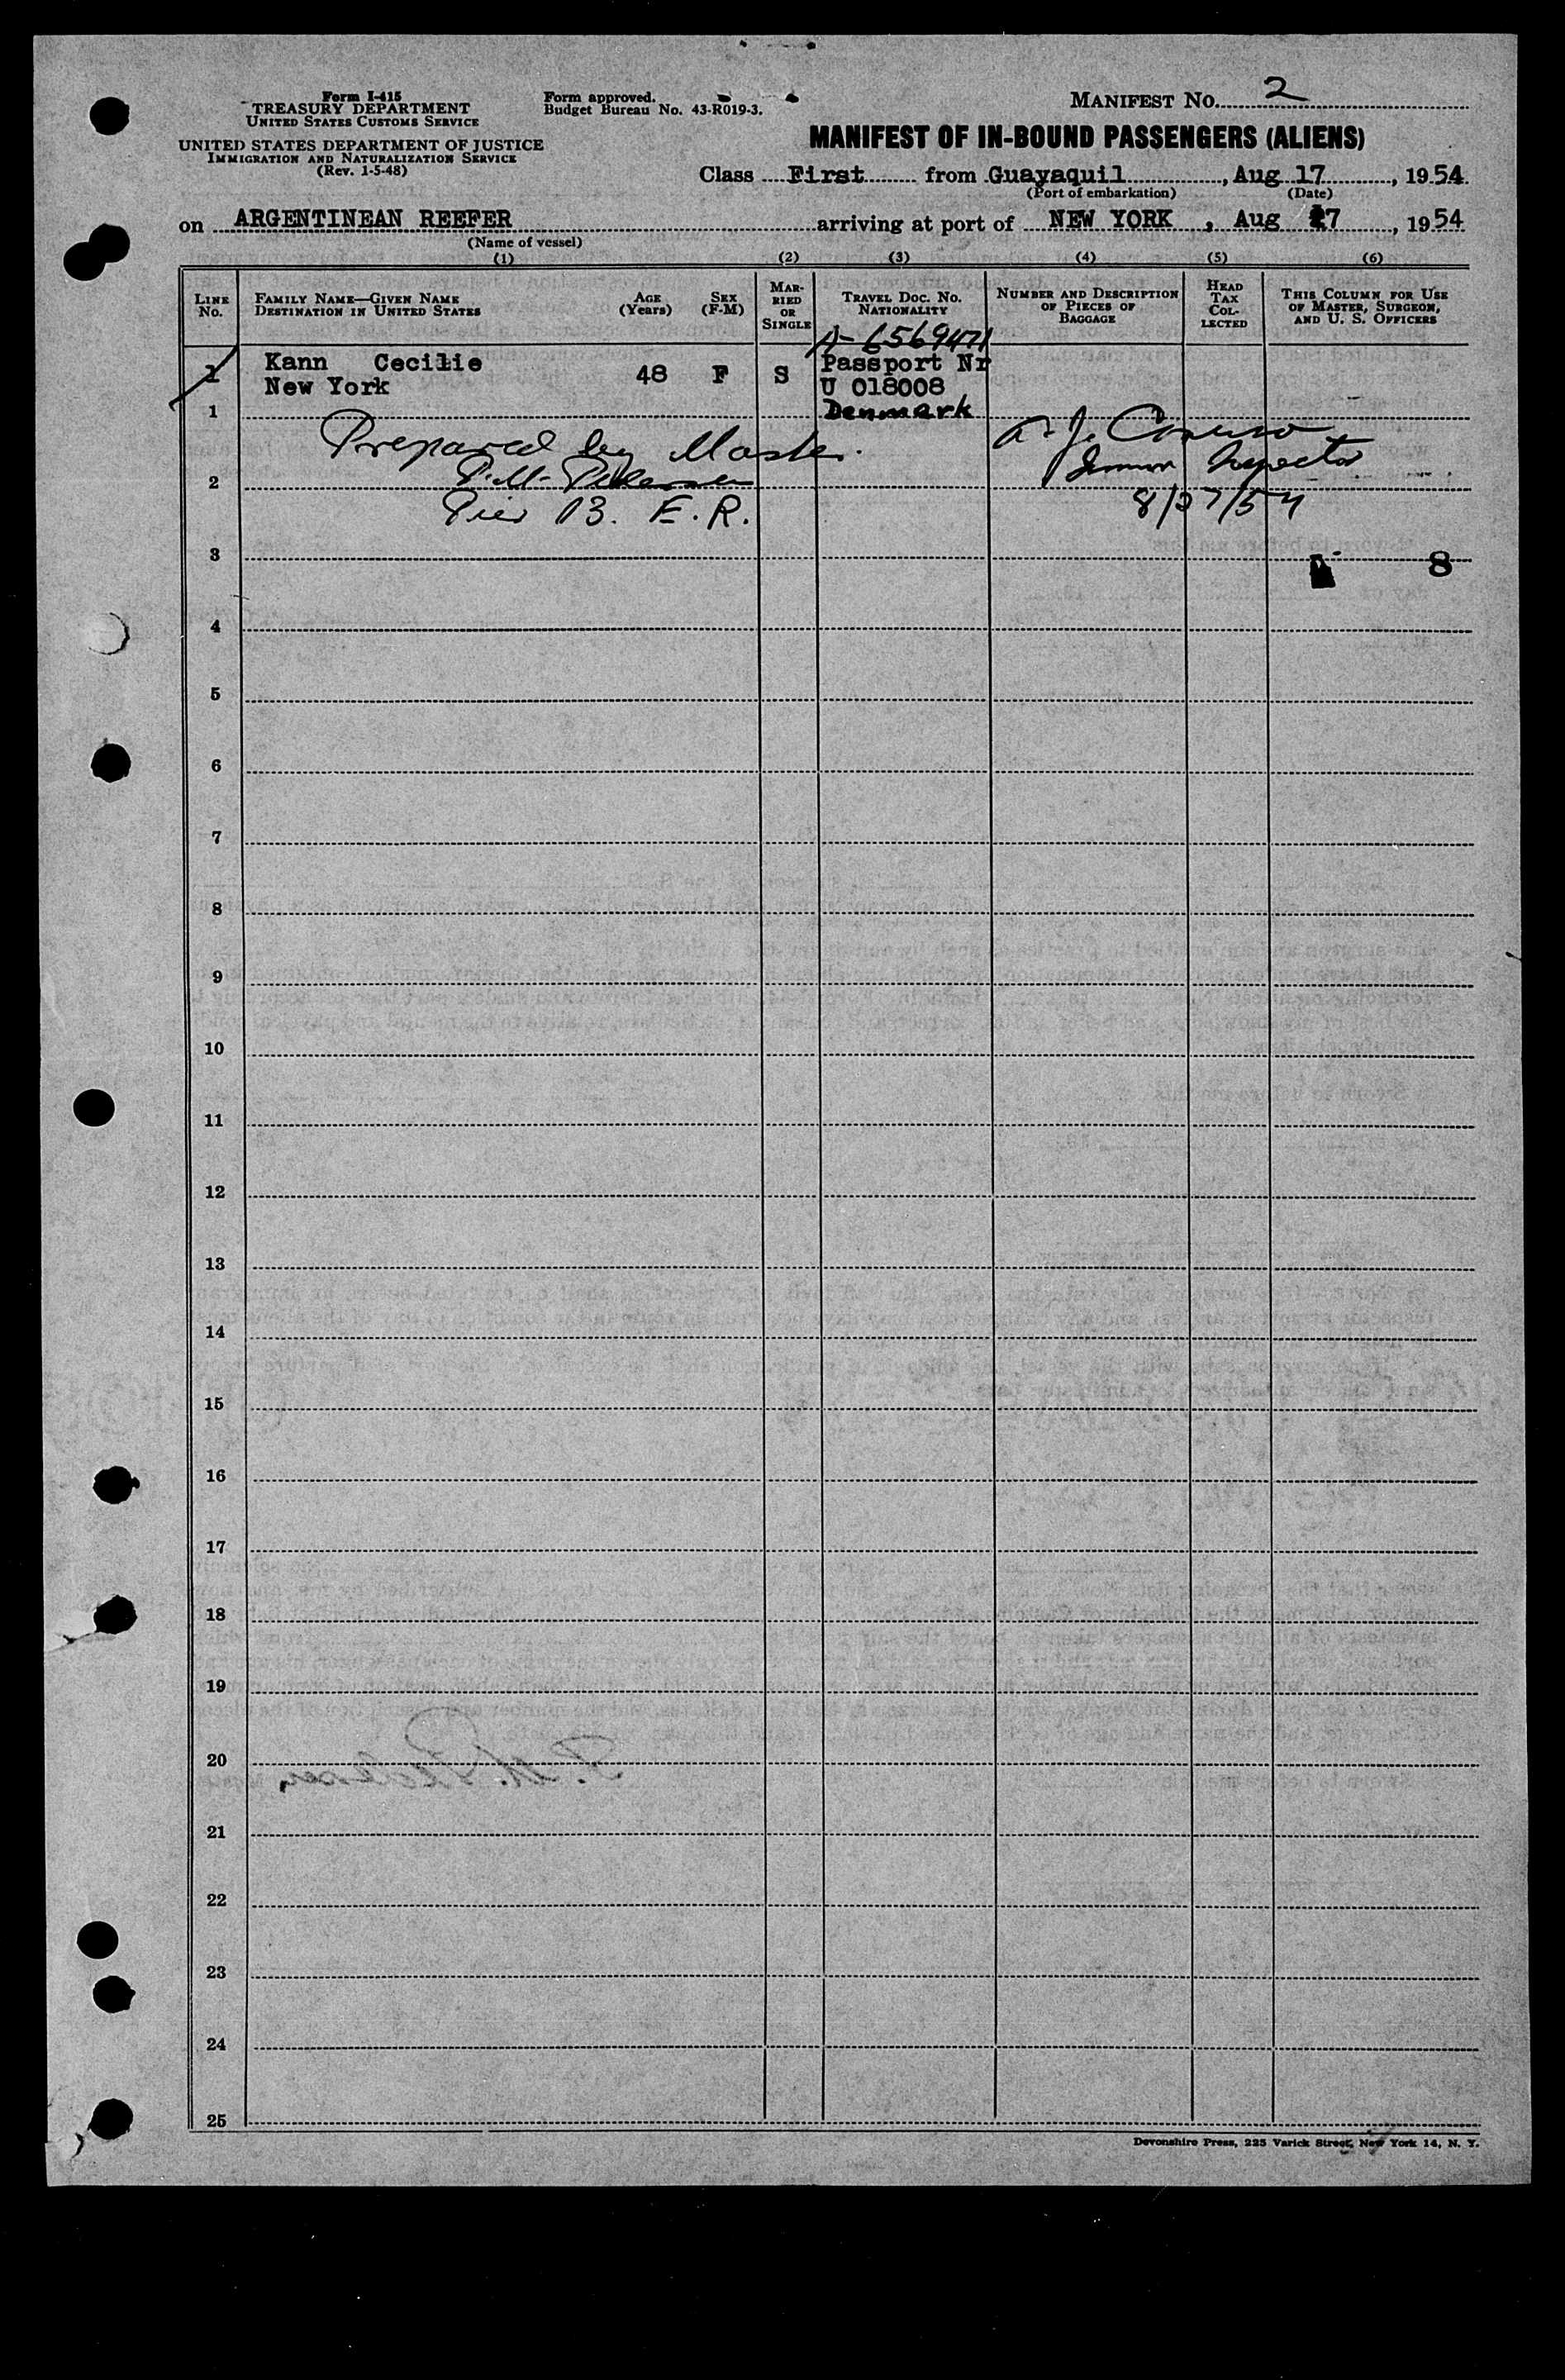 Form I-415
TREASURY DEPARTMENT
UNITED STATES CUSTOMS SERVICE
UNITED STATES DEPARTMENT OF JUSTICE
IMMIGRATION AND NATURALIZATION SERVICE
(Rev. 1-5-48)
Form approved.
Budget Bureau No. 43-R019-3.
MANIFEST NO. 2
MANIFEST OF IN-BOUND PASSENGERS (ALIENS)
Class First from Guayaquil, Aug 17, 1954
(Port of embarkation) (Date)
on ARGENTINEAN REEFER arriving at port of NEW YORK, Aug 27, 1954
(Name of vessel)
(1) (2) (3) (4) (5) (6)
LINE No.
FAMILY NAME—GIVEN NAME
DESTINATION IN UNITED STATES
AGE (Years)
SEX (F-M)
MARRIED OR SINGLE
TRAVEL DOC. NO.
NATIONALITY
NUMBER AND DESCRIPTION OF PIECES OF BAGGAGE
HEAD TAX COLLECTED
THIS COLUMN FOR USE OF MASTER, SURGEON, AND U. S. OFFICERS
A-6569471
1 Kann Cecilie 48 F S Passport Nr
New York U 018008
1 Denmark
Prepared by Master.
2 P.M. Pedersen
Pier 13. E.R.
Inspector
8/27/54
3 8
4
5
6
7
8
9
10
11
12
13
14
15
16
17
18
19
20
21
22
23
24
25
Devonshire Press, 225 Varick Street, New York 14, N. Y.